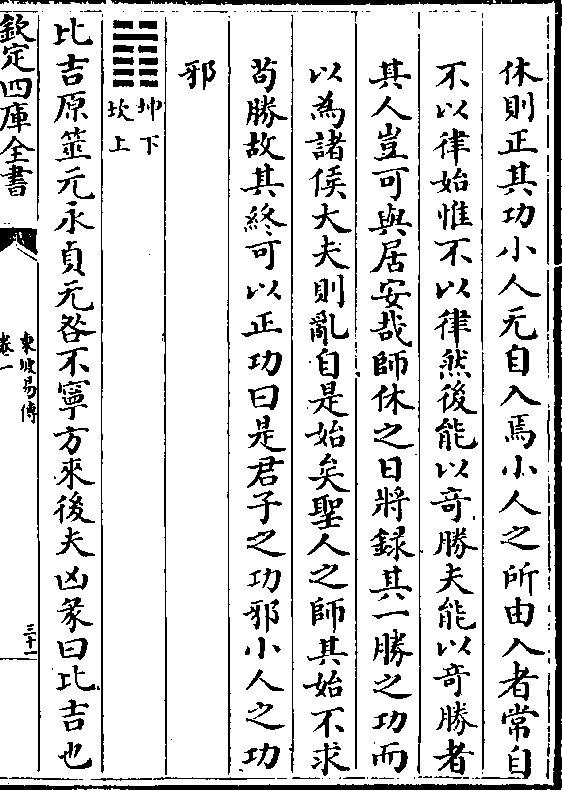 休則正其功小人无自入焉小人之所由入者常自
不以律始惟不以律然後能以竒勝夫能以竒勝者
其人豈可與居安哉師休之日將録其一勝之功而
以為諸侯大夫則亂自是始矣聖人之師其始不求
茍勝故其終可以正功曰是君子之功邪小人之功
邪
坤下
坎上
比吉原筮元永貞无咎不寧方來後夫凶彖曰比吉也
欽定四庫全書
東坡易傳
卷一
三十一